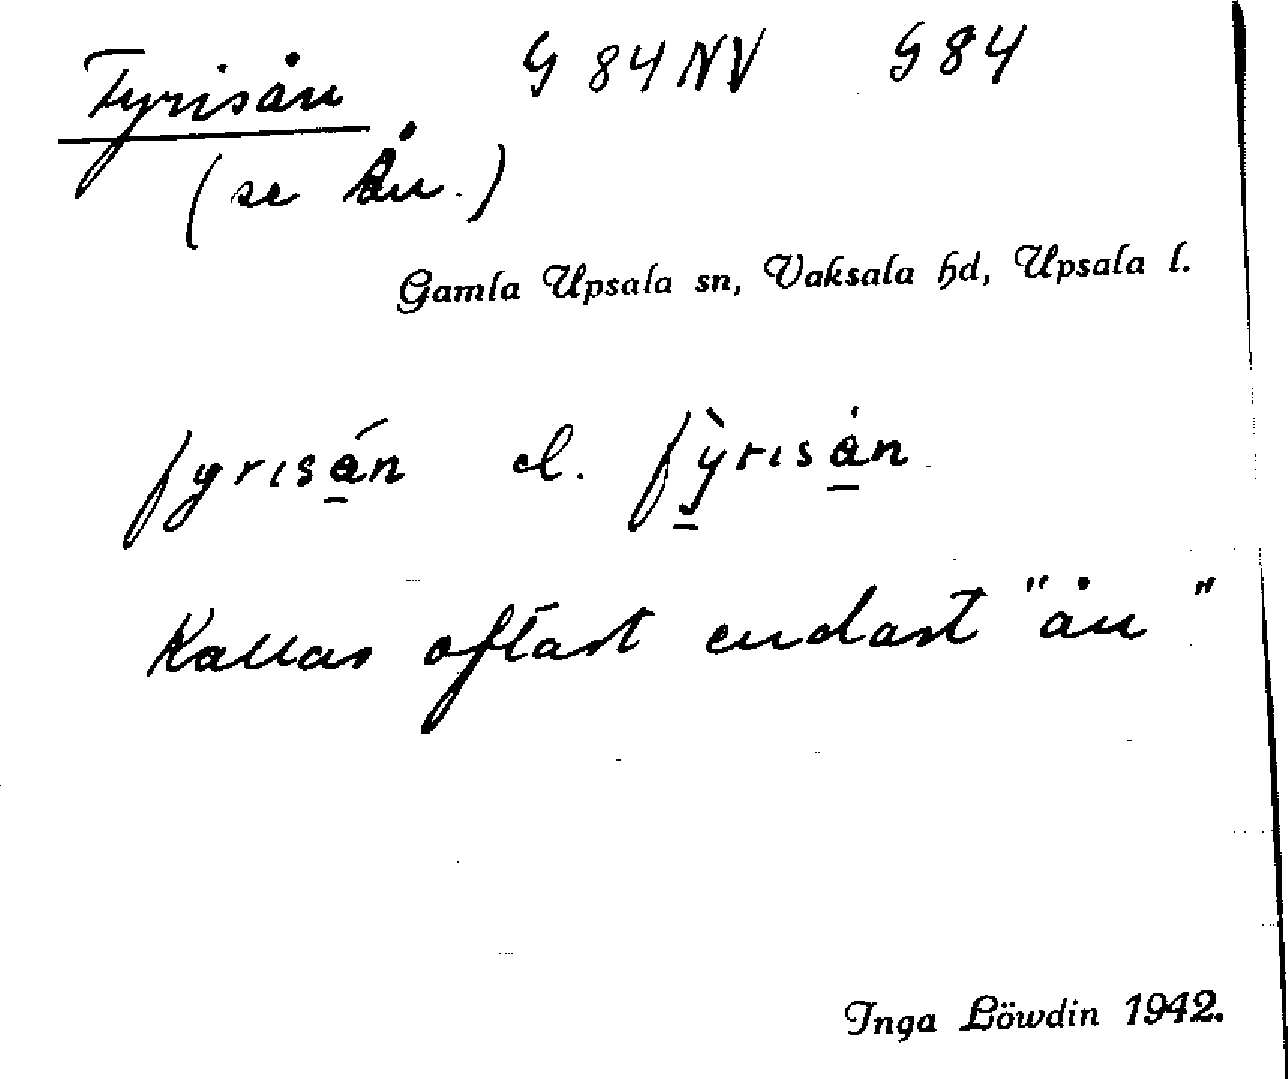 Fyrisån G 84 NV G 84
(se Ån.)
Gamla Upsala sn, Vaksala hd, Upsala l.
fyrisån el. fỳrisån
Kallas oftast endast "ån"
Inga Löwdin 1942.